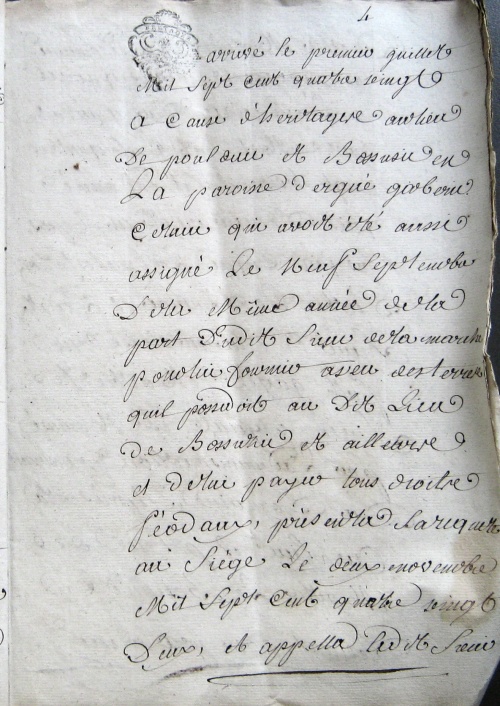 4
arrivé le premier juillet
Mil Sept Cent quatre vingt
a Cause d'heritagese au lieu
De poulduic et Bossuzic en
La paroisse d'ergué gaberic
Celuici qui avoit été aussi
assigné Le Neuf Septembre
De la Même année de la
part Dudit Sieur de la marche
pour lui fournir aveu des terres
quil possedoit au Dit Lieu
de Bossuzic et ailleurse
et de lui payer tous droitse
féodaux, présenta sa requete
au Siége Le deux novembre
Mil Sept Cent quatre vingt
Deux, et appella Ledit Sieur